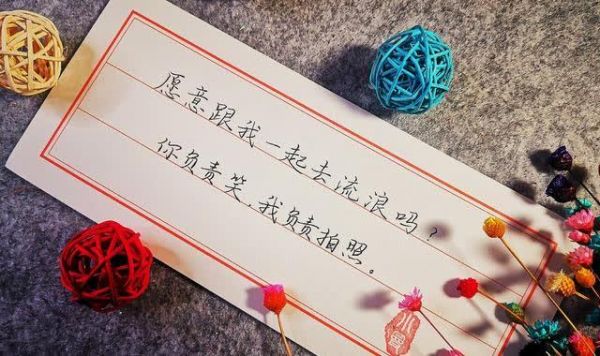 愿意跟我一起去流浪吗?
你负责笑,我负责拍照。